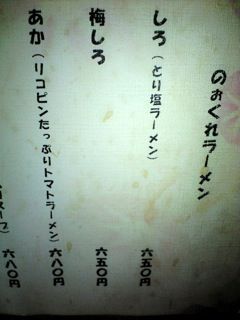 のおぐれラーメン
しろ(とり塩ラーメン) 六五〇円
梅しろ 六五〇円
あか(リコピンたっぷりトマトラーメン) 六八〇円
スープ) 六八〇円